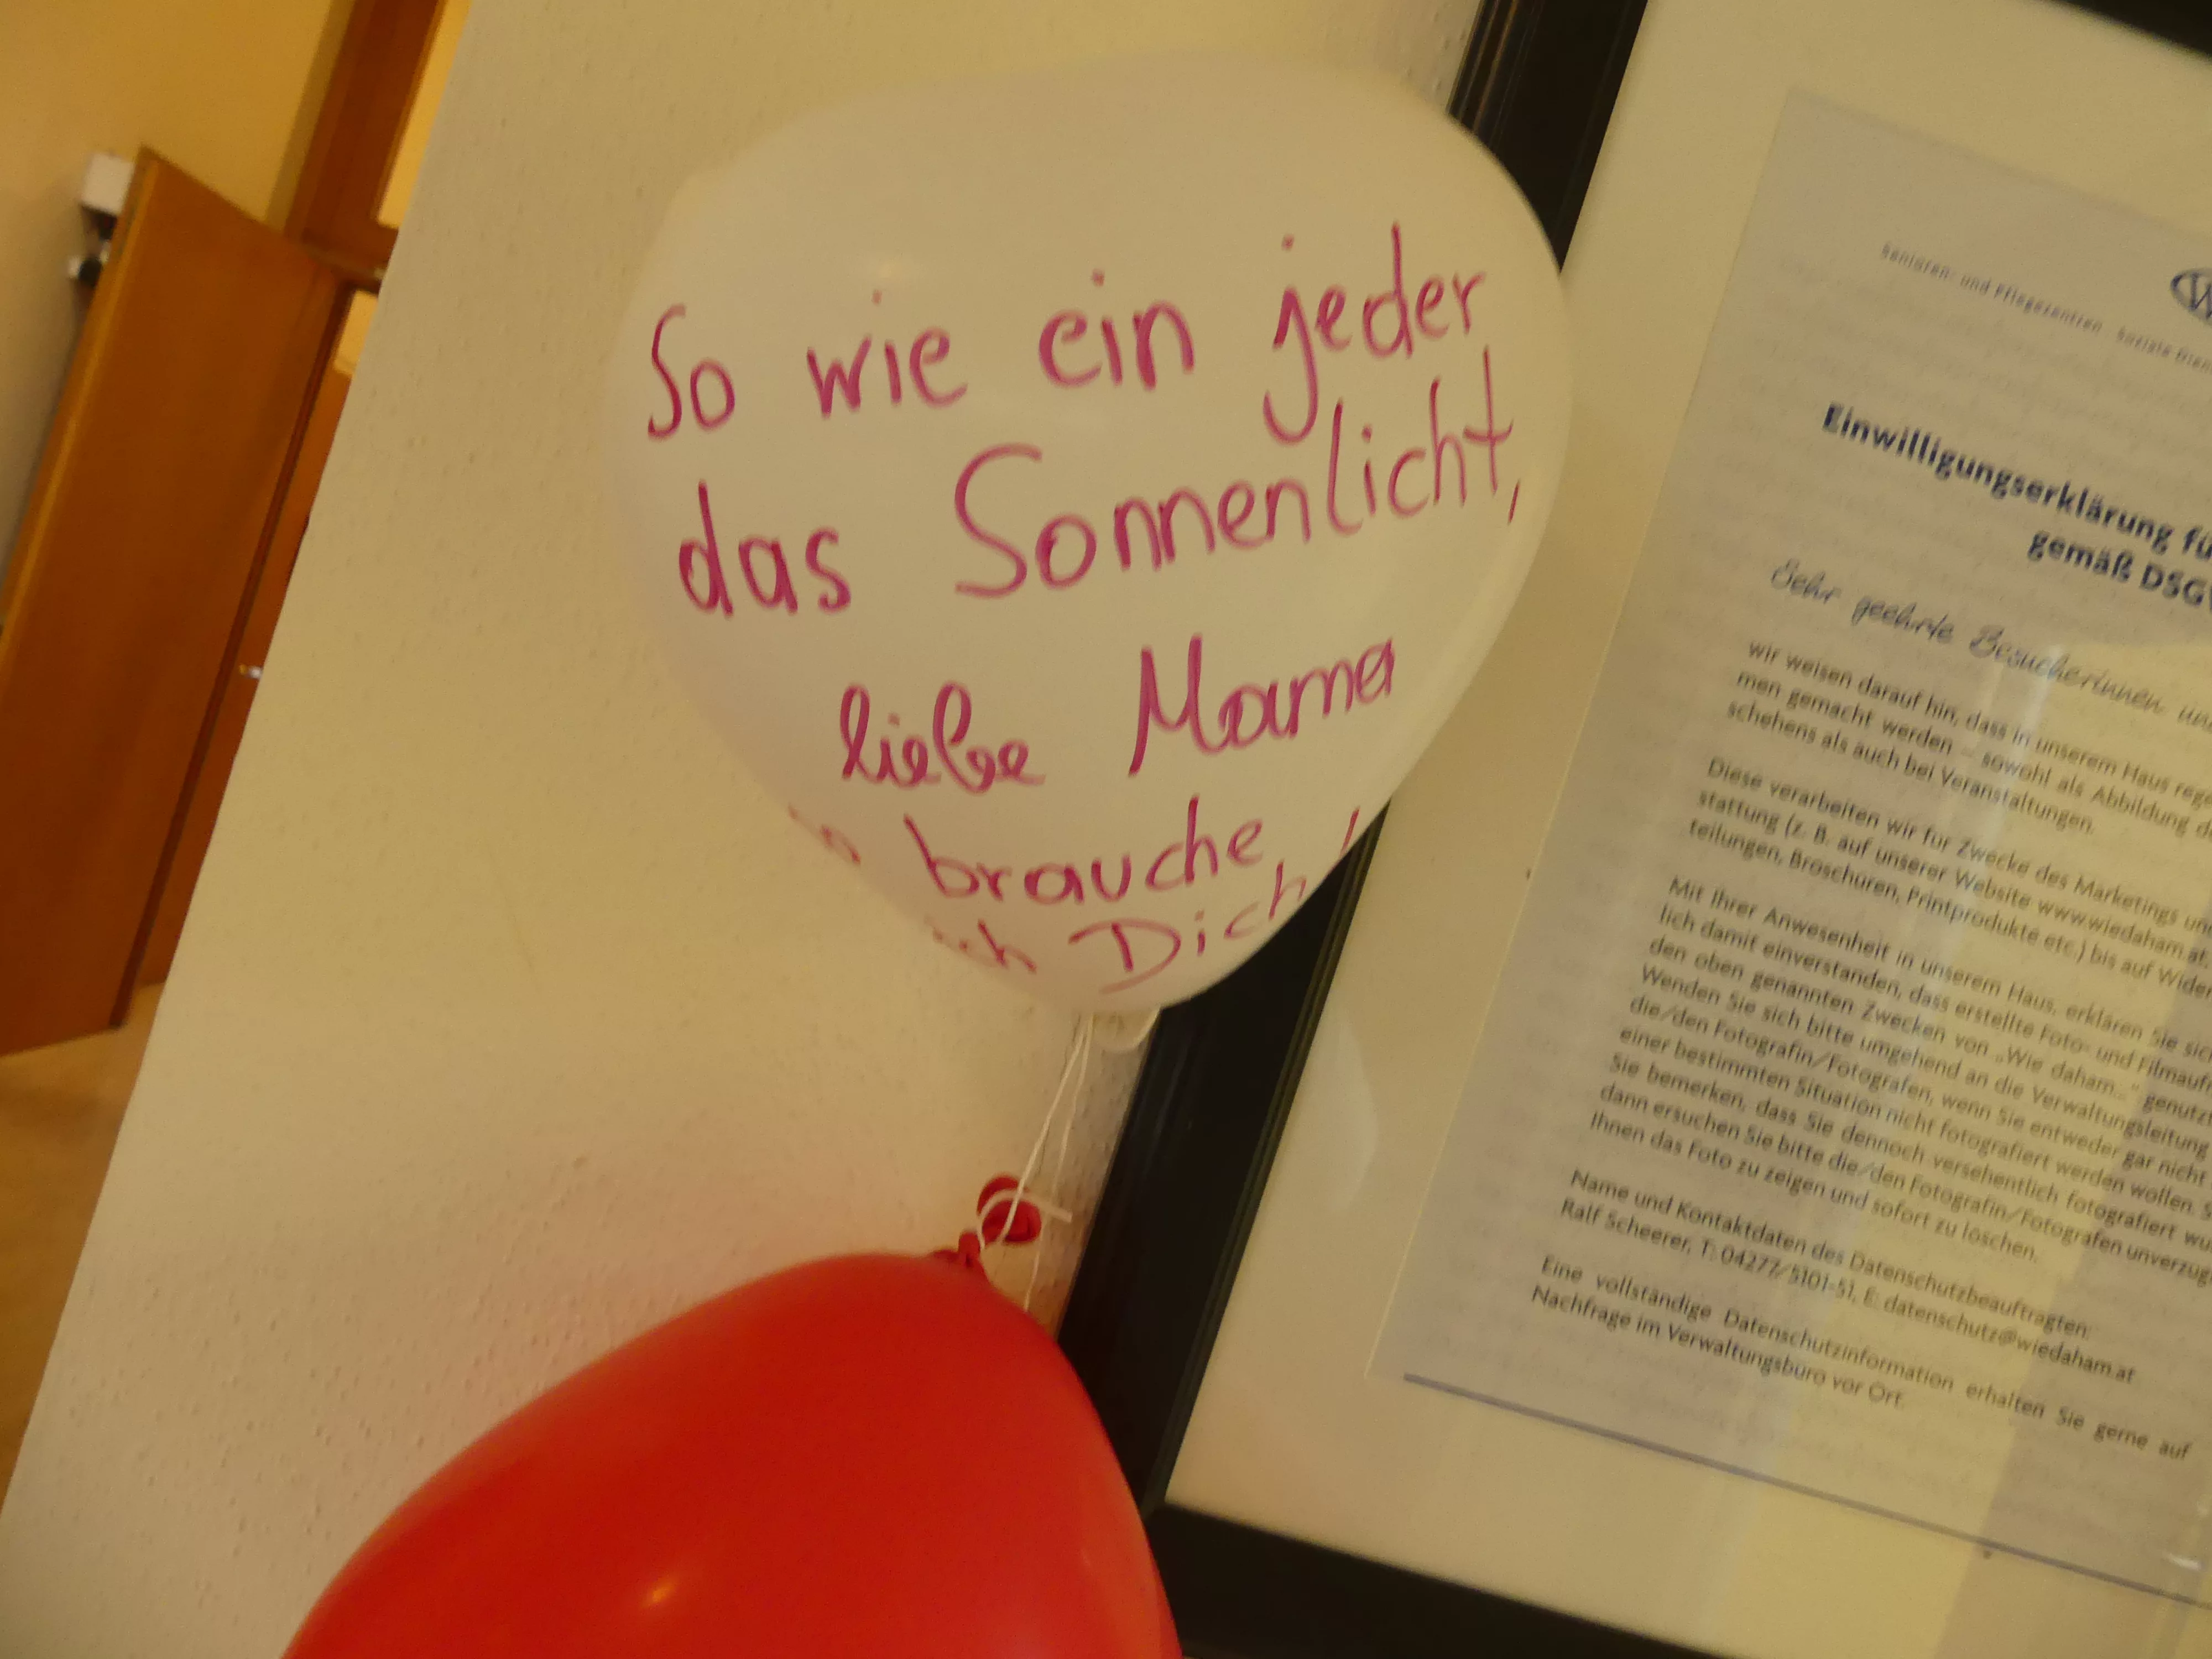 So wie ein jeder
das Sonnenlicht,
liebe Mama
so brauche
ich Dich!
Senioren- und Pflegezentren Soziale
Einwilligungserklärung
gemäß
Sehr geehrte Besucherinnen
wir weisen darauf hin, dass in unserem Haus
men gemacht werden – sowohl als Abbildung
schehens als auch bei Veranstaltungen.
Diese verarbeiten wir für Zwecke des Marketings
stattung (z. B. auf unserer Website www.wiedaham.at,
teilungen, Broschüren, Printprodukte etc.) bis auf
Mit Ihrer Anwesenheit in unserem Haus, erklären Sie
lich damit einverstanden, dass erstellte Foto- und
den oben genannten Zwecken von „Wie daham...“
Wenden Sie sich bitte umgehend an die Verwaltungsleitung
die/den Fotografin/Fotografen, wenn Sie entweder gar nicht
einer bestimmten Situation nicht fotografiert werden wollen.
Sie bemerken, dass Sie dennoch versehentlich fotografiert
dann ersuchen Sie bitte die/den Fotografin/Fotografen
Ihnen das Foto zu zeigen und sofort zu löschen.
Name und Kontaktdaten des Datenschutzbeauftragten:
Ralf Scheerer, T: 04277/5101-51, E: datenschutz@wiedaham.at
Eine vollständige Datenschutzinformation erhalten Sie gerne auf
Nachfrage im Verwaltungsbüro vor Ort.